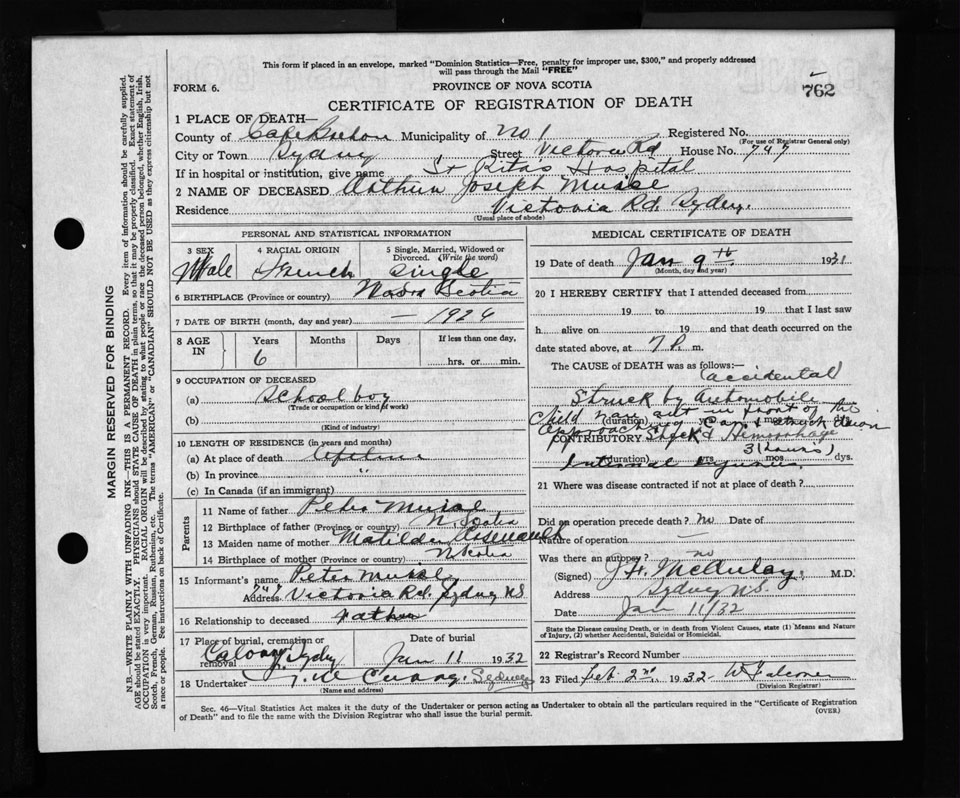 This form if placed in an envelope, marked "Dominion Statistics—Free, penalty for improper use, $300," and properly addressed
will pass through the Mail "FREE"
FORM 6.
PROVINCE OF NOVA SCOTIA
762
CERTIFICATE OF REGISTRATION OF DEATH
1 PLACE OF DEATH—
County of Cape Breton Municipality of No 1 Registered No.
(For use of Registrar General only)
City or Town Sydney Street Victoria Rd House No. 747
If in hospital or institution, give name St Ritas Hospital
2 NAME OF DECEASED Arthur Joseph Muise
Residence Victoria Rd. Sydney.
(Usual place of abode)
PERSONAL AND STATISTICAL INFORMATION
3 SEX 4 RACIAL ORIGIN 5 Single, Married, Widowed or
Divorced. (Write the word)
Male French Single
6 BIRTHPLACE (Province or country) Nova Scotia
7 DATE OF BIRTH (month, day and year) — 1926
8 AGE IN Years Months Days If less than one day,
6 hrs. or min.
9 OCCUPATION OF DECEASED
(a) School boy
(Trade or occupation or kind of work)
(b)
(Kind of industry)
10 LENGTH OF RESIDENCE (in years and months)
(a) At place of death
(b) In province "
(c) In Canada (if an immigrant)
Parents
11 Name of father Peter
12 Birthplace of father (Province or country) N. Scotia
13 Maiden name of mother Matilda
14 Birthplace of mother (Province or country) N Scotia
15 Informant's name Peter
Address Victoria Rd. Sydney N.S.
16 Relationship to deceased Father
17 Place of burial, cremation or removal Date of burial
Sydney Jan 11 1932
18 Undertaker Sydney
(Name and address)
MEDICAL CERTIFICATE OF DEATH
19 Date of death Jan 9th 1931
(Month, day and year)
20 I HEREBY CERTIFY that I attended deceased from
19 to 19 that I last saw
h alive on 19 and that death occurred on
date stated above, at 7 P. m.
The CAUSE of DEATH was as follows:—
accidental
Struck by Automobile
Child ran out in front of the
(duration) yrs. mos. dys.
approaching car & struck down
CONTRIBUTORY Shock & Hemorrhage
3 (hours)
(duration) yrs. mos. dys.
Internal injuries.
21 Where was disease contracted if not at place of death?
Did an operation precede death? no Date of
Nature of operation —
Was there an autopsy? no
(Signed) McAulay M.D.
Address Sydney N.S.
Date Jan 11/32
State the Disease causing Death, or in death from Violent Causes, state (1) Means and Nature
of Injury, (2) whether Accidental, Suicidal or Homicidal.
22 Registrar's Record Number
23 Filed Feb. 2nd. 1932
(Division Registrar)
Sec. 46—Vital Statistics Act makes it the duty of the Undertaker or person acting as Undertaker to obtain all the particulars required in the "Certificate of Registration
of Death" and to file the same with the Division Registrar who shall issue the burial permit.
(OVER)
MARGIN RESERVED FOR BINDING
N.B.—WRITE PLAINLY WITH UNFADING INK—THIS IS A PERMANENT RECORD. Every item of information should be carefully supplied.
AGE should be stated EXACTLY. PHYSICIANS should STATE CAUSE OF DEATH in plain terms, so that it may be properly classified. Exact statement of
OCCUPATION is very important. RACIAL ORIGIN will be described by stating to what people or race the deceased person belonged, whether English, Irish,
Scotch, French, German, Russian, Ruthenian, etc. The terms "AMERICAN" or "CANADIAN" SHOULD NOT BE USED as they express citizenship but not
a race or people. See instructions on back of Certificate.